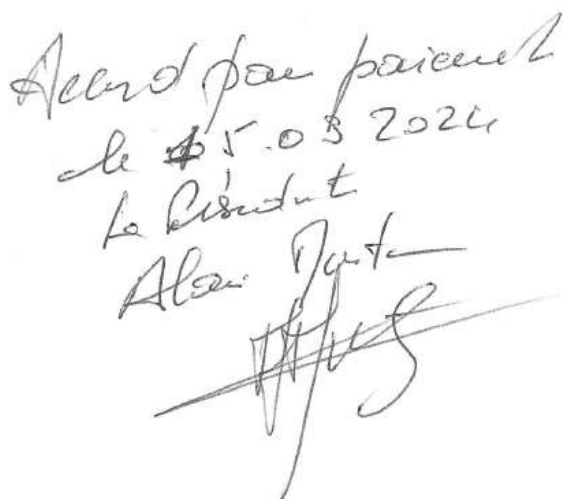 Accord pour paiement
le 15.03 2024
Le Président
Alain